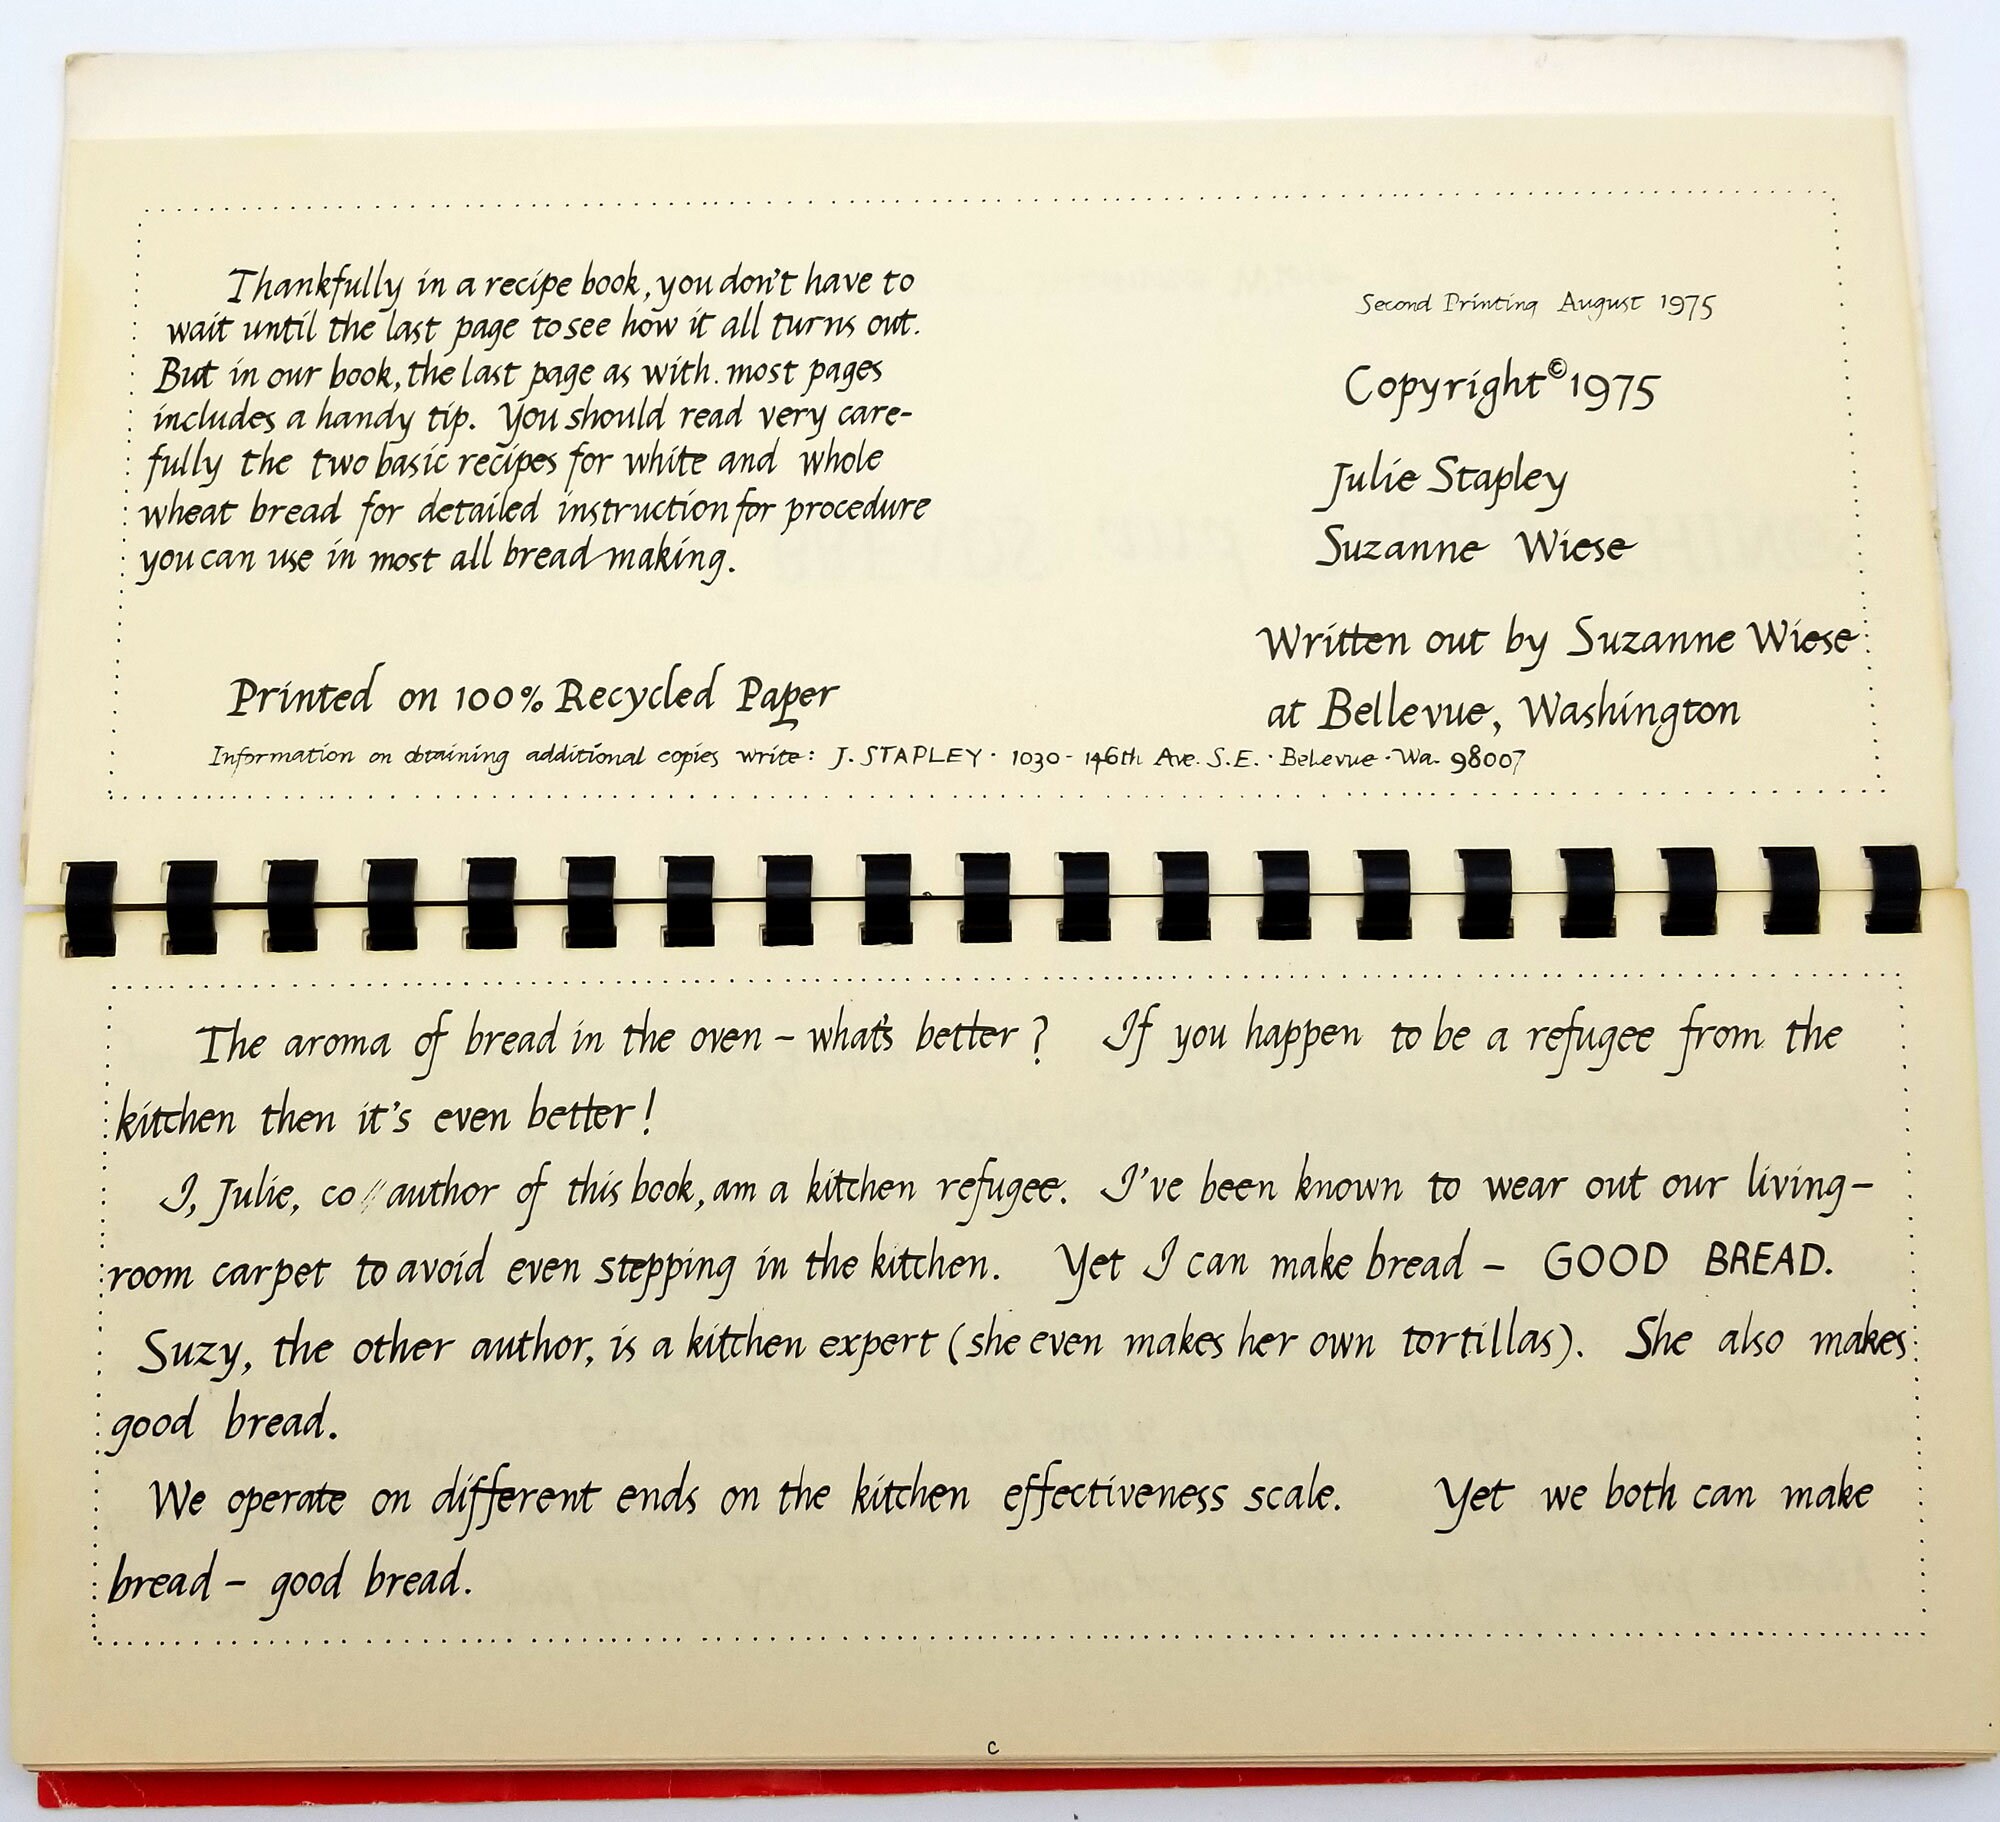 Thankfully in a recipe book, you don't have to
wait until the last page to see how it all turns out.
But in our book, the last page as with. most pages
includes a handy tip. You should read very care-
fully the two basic recipes for white and whole
wheat bread for detailed instruction for procedure
you can use in most all bread making.
Printed on 100% Recycled Paper
Second Printing August 1975
Copyright © 1975
Julie Stapley
Suzanne Wiese
Written out by Suzanne Wiese
at Bellevue, Washington
Information on obtaining additional copies write: J. STAPLEY · 1030 - 146th Ave. S.E. · Bellevue · Wa. 98007
The aroma of bread in the oven – what's better? If you happen to be a refugee from the
kitchen then it's even better!
I, Julie, co // author of this book, am a kitchen refugee. I've been known to wear out our living-
room carpet to avoid even stepping in the kitchen. Yet I can make bread – GOOD BREAD.
Suzy, the other author, is a kitchen expert (she even makes her own tortillas). She also makes
good bread.
We operate on different ends on the kitchen effectiveness scale. Yet we both can make
bread – good bread.
c